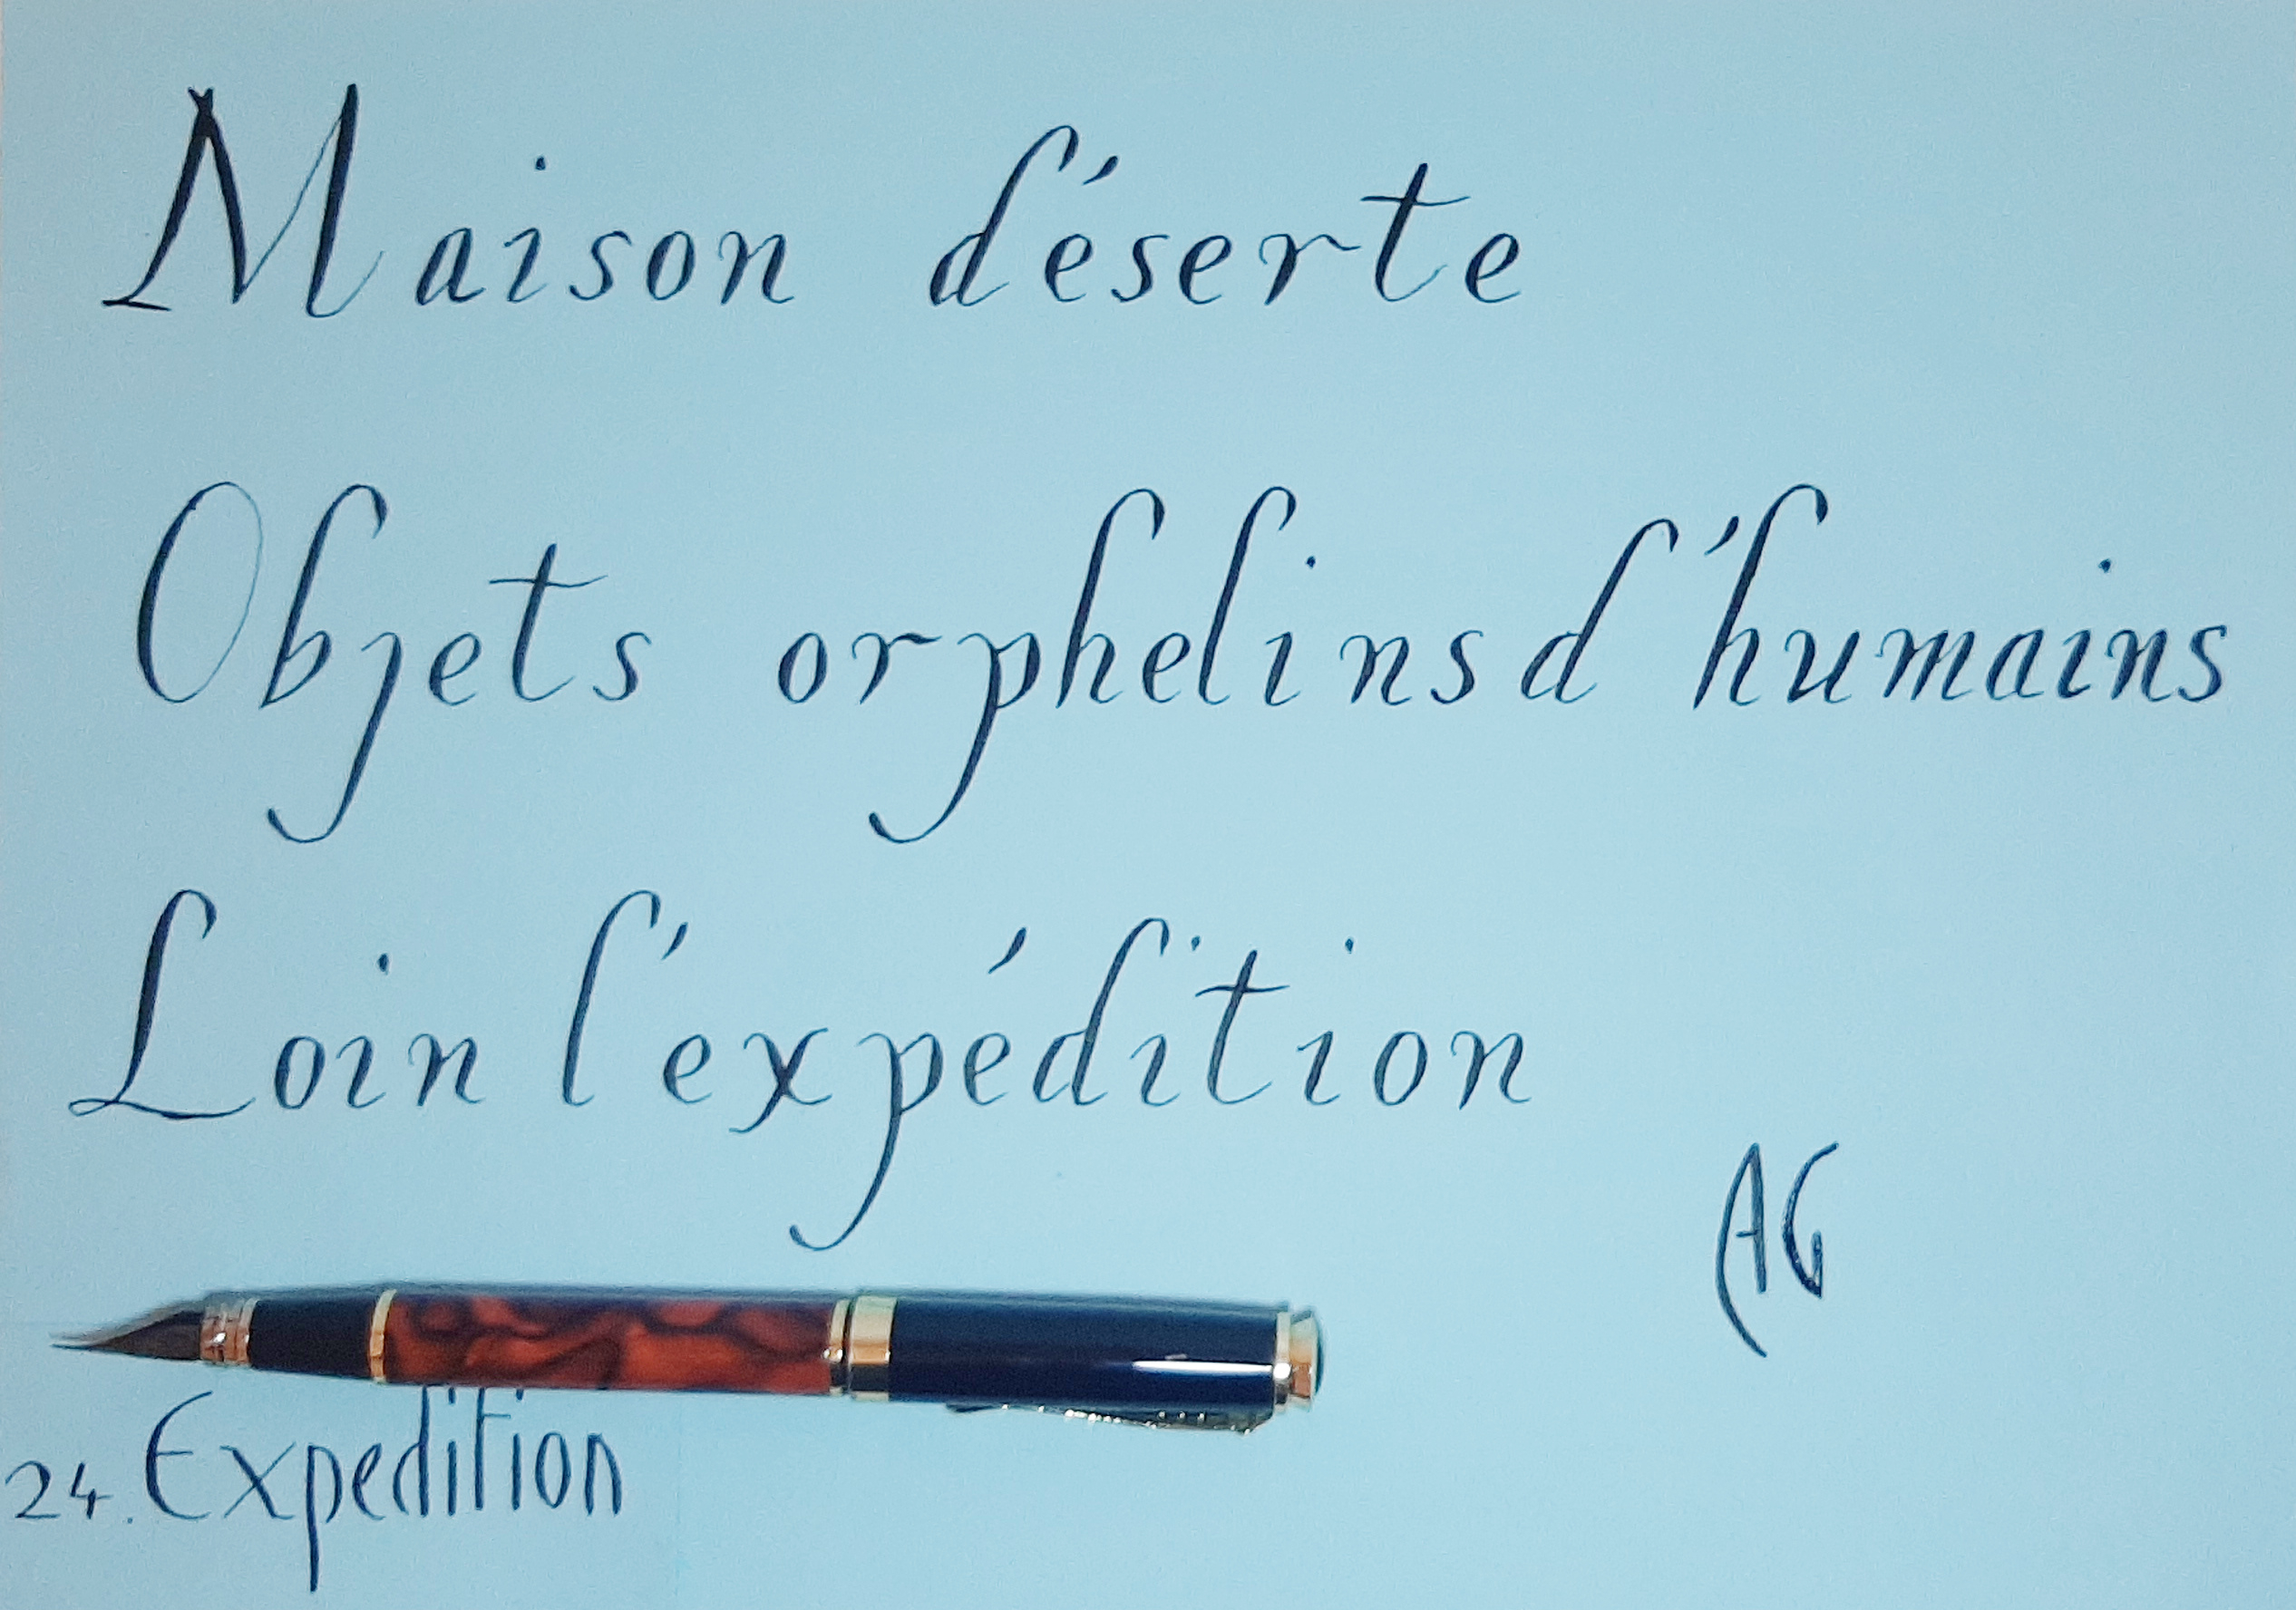 Maison déserte
Objets orphelins d'humains
Loin l'expédition
AG
24. Expedition